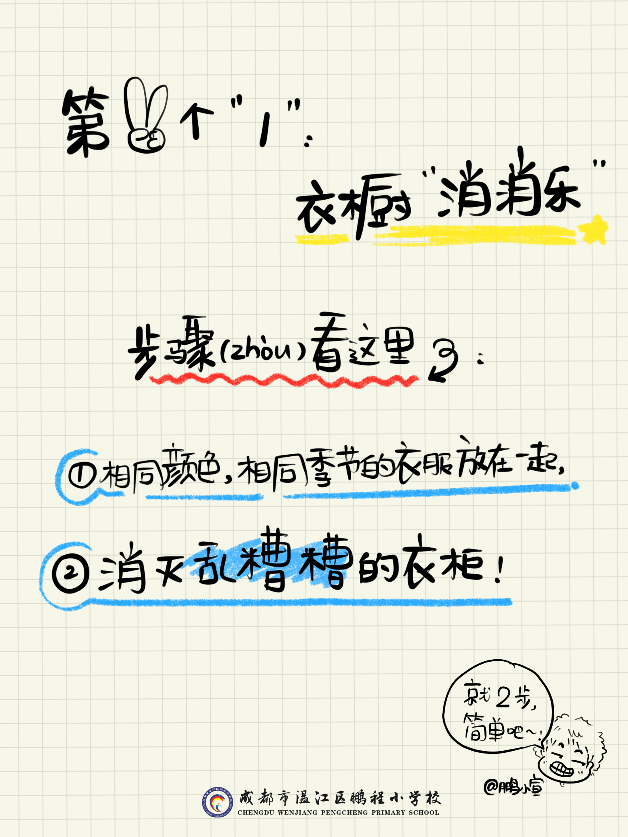 第个"1"：
衣橱"消消乐"
步骤(zhòu)看这里：
①相同颜色,相同季节的衣服放在一起,
②消灭乱糟糟的衣柜！
就2步,
简单吧~
@鹏小宣
成都市温江区鹏程小学校
CHENGDU WENJIANG PENGCHENG PRIMARY SCHOOL